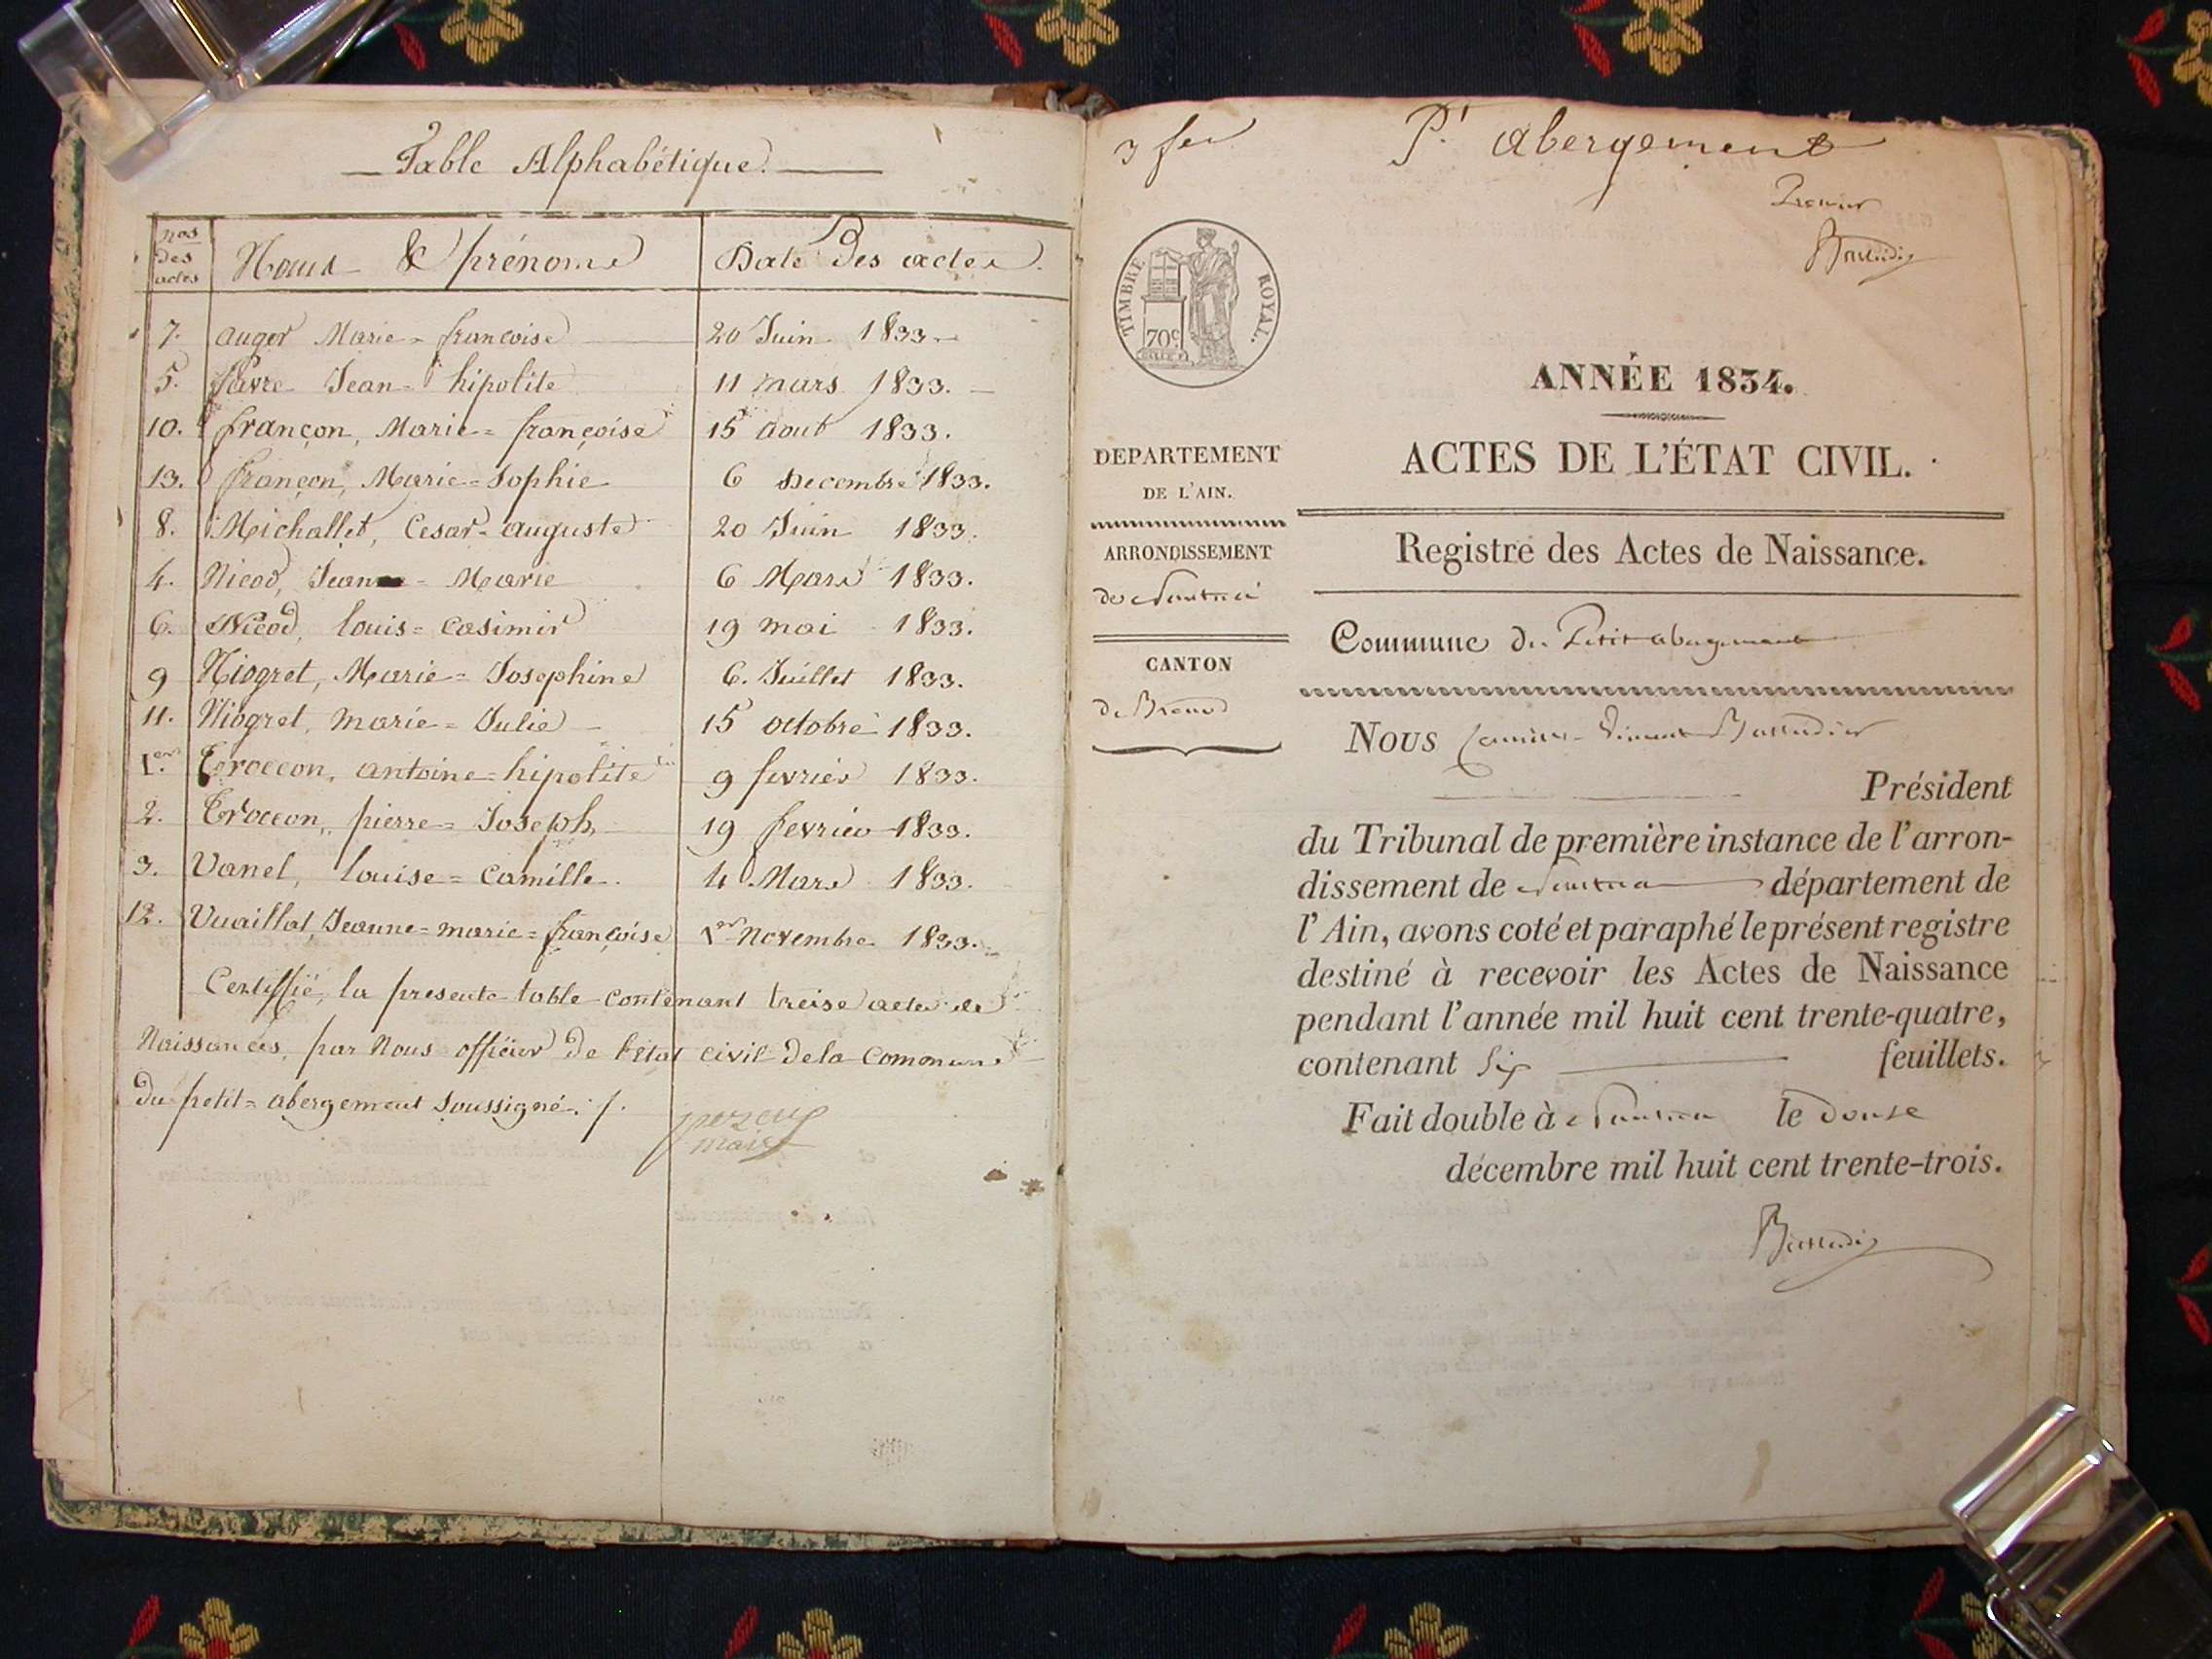 Table Alphabétique.
nos des actes
Noms & prénoms
Date Des actes.
7. auger Marie= francoise 20 Juin 1833.
5. favre Jean= hipolite 11 mars 1833.
10. françon, Marie= françoise 15 aout 1833.
13. françon, Marie=Sophie 6 Decembre 1833.
8. Michallet, Cesar= auguste 20 Juin 1833.
4. Nicod, Jean - Marie 6 Mars 1833.
6. Nicod, louis= casimir 19 mai 1833.
9 Niogret, Marie= Josephine 6. Juillet 1833.
11. Niogret, marie= Julie 15 octobre 1833.
1.er Troccon, antoine=hipolite 9 fevrier 1833.
2. Troccon, pierre= Joseph 19 fevrier 1833.
3. Vanel, louise= Camille. 4 Mars 1833.
12. Vuaillat, Jeanne=marie=françoise 1er Novembre 1833.
Certiffié, la presente table contenant treise actes de
Naissances, par Nous officier De l'Etat civil De la commune
Du petit= abergement Soussigné. /.
maire
P.t abergement
Premier
TIMBRE ROYAL.
70c
ANNÉE 1834.
ACTES DE L'ÉTAT CIVIL.
Registre des Actes de Naissance.
DEPARTEMENT
DE L'AIN.
ARRONDISSEMENT
de Nantua
CANTON
de Brenod
Commune du Petit abergement
Nous
Président
du Tribunal de première instance de l'arron-
dissement de Nantua département de
l'Ain, avons coté et paraphé le présent registre
destiné à recevoir les Actes de Naissance
pendant l'année mil huit cent trente-quatre,
contenant Six feuillets.
Fait double à Nantua le Douse
décembre mil huit cent trente-trois.